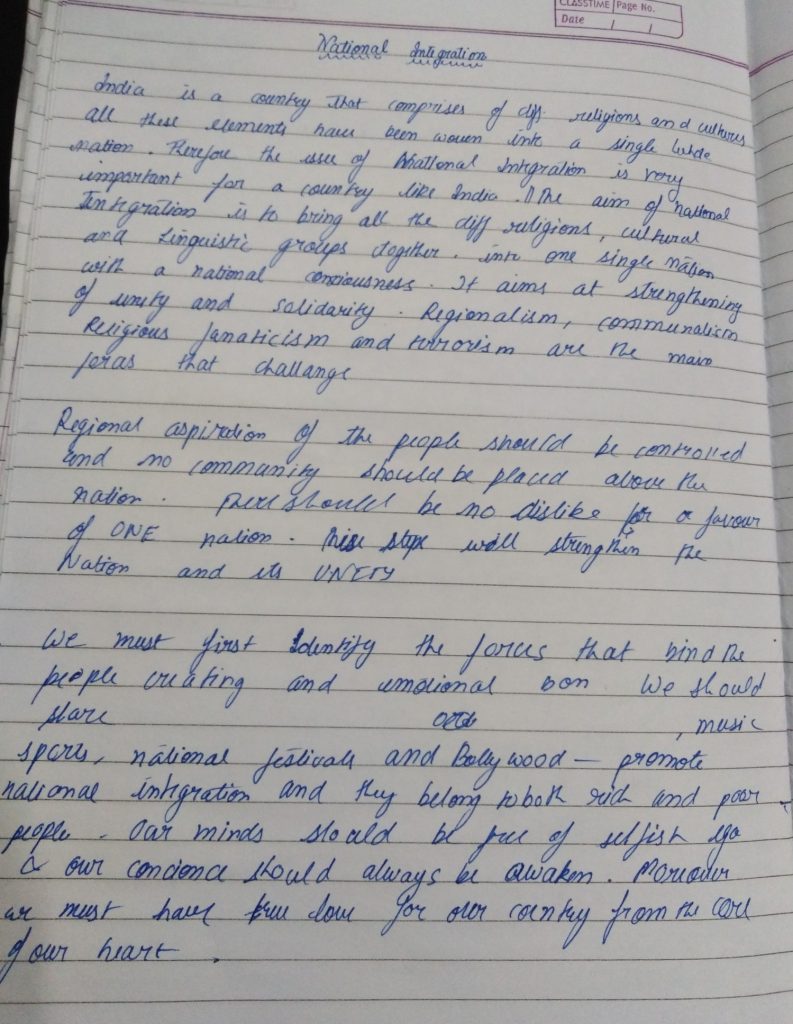 CLASSTIME Page No.
Date / /
National Integration
India is a country that comprises of diff. religions and cultures
all these elements have been woven into a single whole
nation. Therefore the issue of National Integration is very
important for a country like India. The aim of national
Integration is to bring all the diff religions, cultural
and Linguistic groups together. into one single nation
with a national consciousness. It aims at strengthening
of unity and solidarity. Regionalism, communalism
Religious fanaticism and terrorism are the main
forces that challange
Regional aspiration of the people should be controlled
and no community should be placed above the
nation. There should be no dislike for a favour
of ONE nation. These steps will strengthin the
Nation and its UNITY
We must first Identify the forces that bind the
people creating and emotional bon We should
share , music
sports, national festivals and Bollywood — promote
national integration and they belong to both rich and poor
people. Our minds should be free of selfish ego
& our concience should always be awaken. Moreover
we must have true love for our country from the core
of our heart.